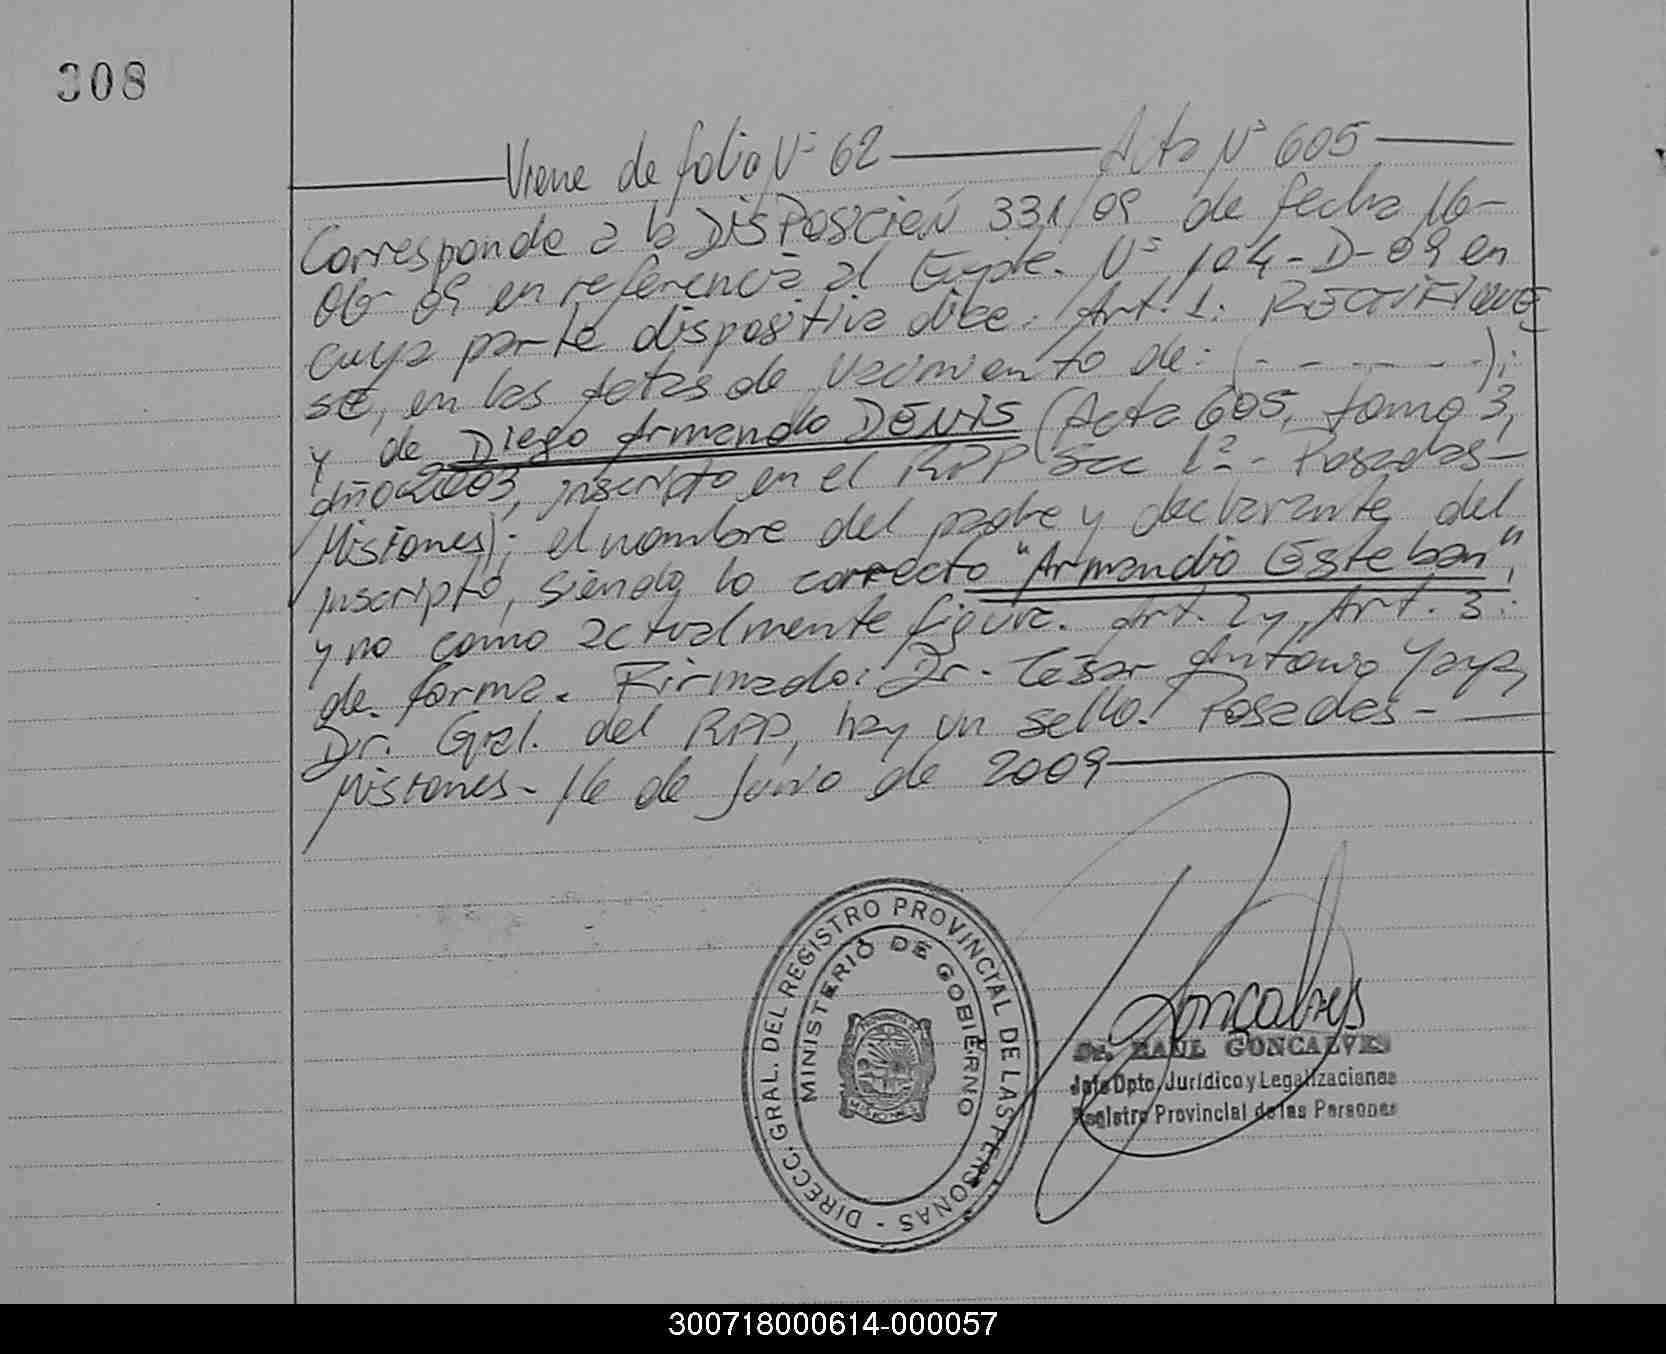 308
Viene de folio Nº 62 Acta Nº 605
Corresponde a la DISPOSICIÓN 331/09 de fecha 16-
06-09 en referencia al Expte. Nº 104-D-09 en
cuya parte dispositiva dice: Art. 1: RECTIFIQUE
SE, en las Actas de Nacimiento de: (- - - - - -);
y de Diego Armando DENIS (Acta 605, tomo 3,
año 2003, inscripto en el RPP Sec 1º - Posadas-
Misiones); el nombre del padre y declarante del
inscripto, siendo lo correcto "Armandio Esteban",
y no como actualmente figura. Art. 2 y Art. 3:
de forma. Firmado: Dr. César Antonio Yaya,
Dr. Gral. del RPP, hay un sello. Posadas-
Misiones- 16 de Junio de 2009
DIRECC. GRAL. DEL REGISTRO PROVINCIAL DE LAS PERSONAS -
MINISTERIO DE GOBIERNO
Goncalves
Dr. RAUL GONCALVES
Jefe Dpto. Jurídico y Legalizaciones
Registro Provincial de las Personas
300718000614-000057